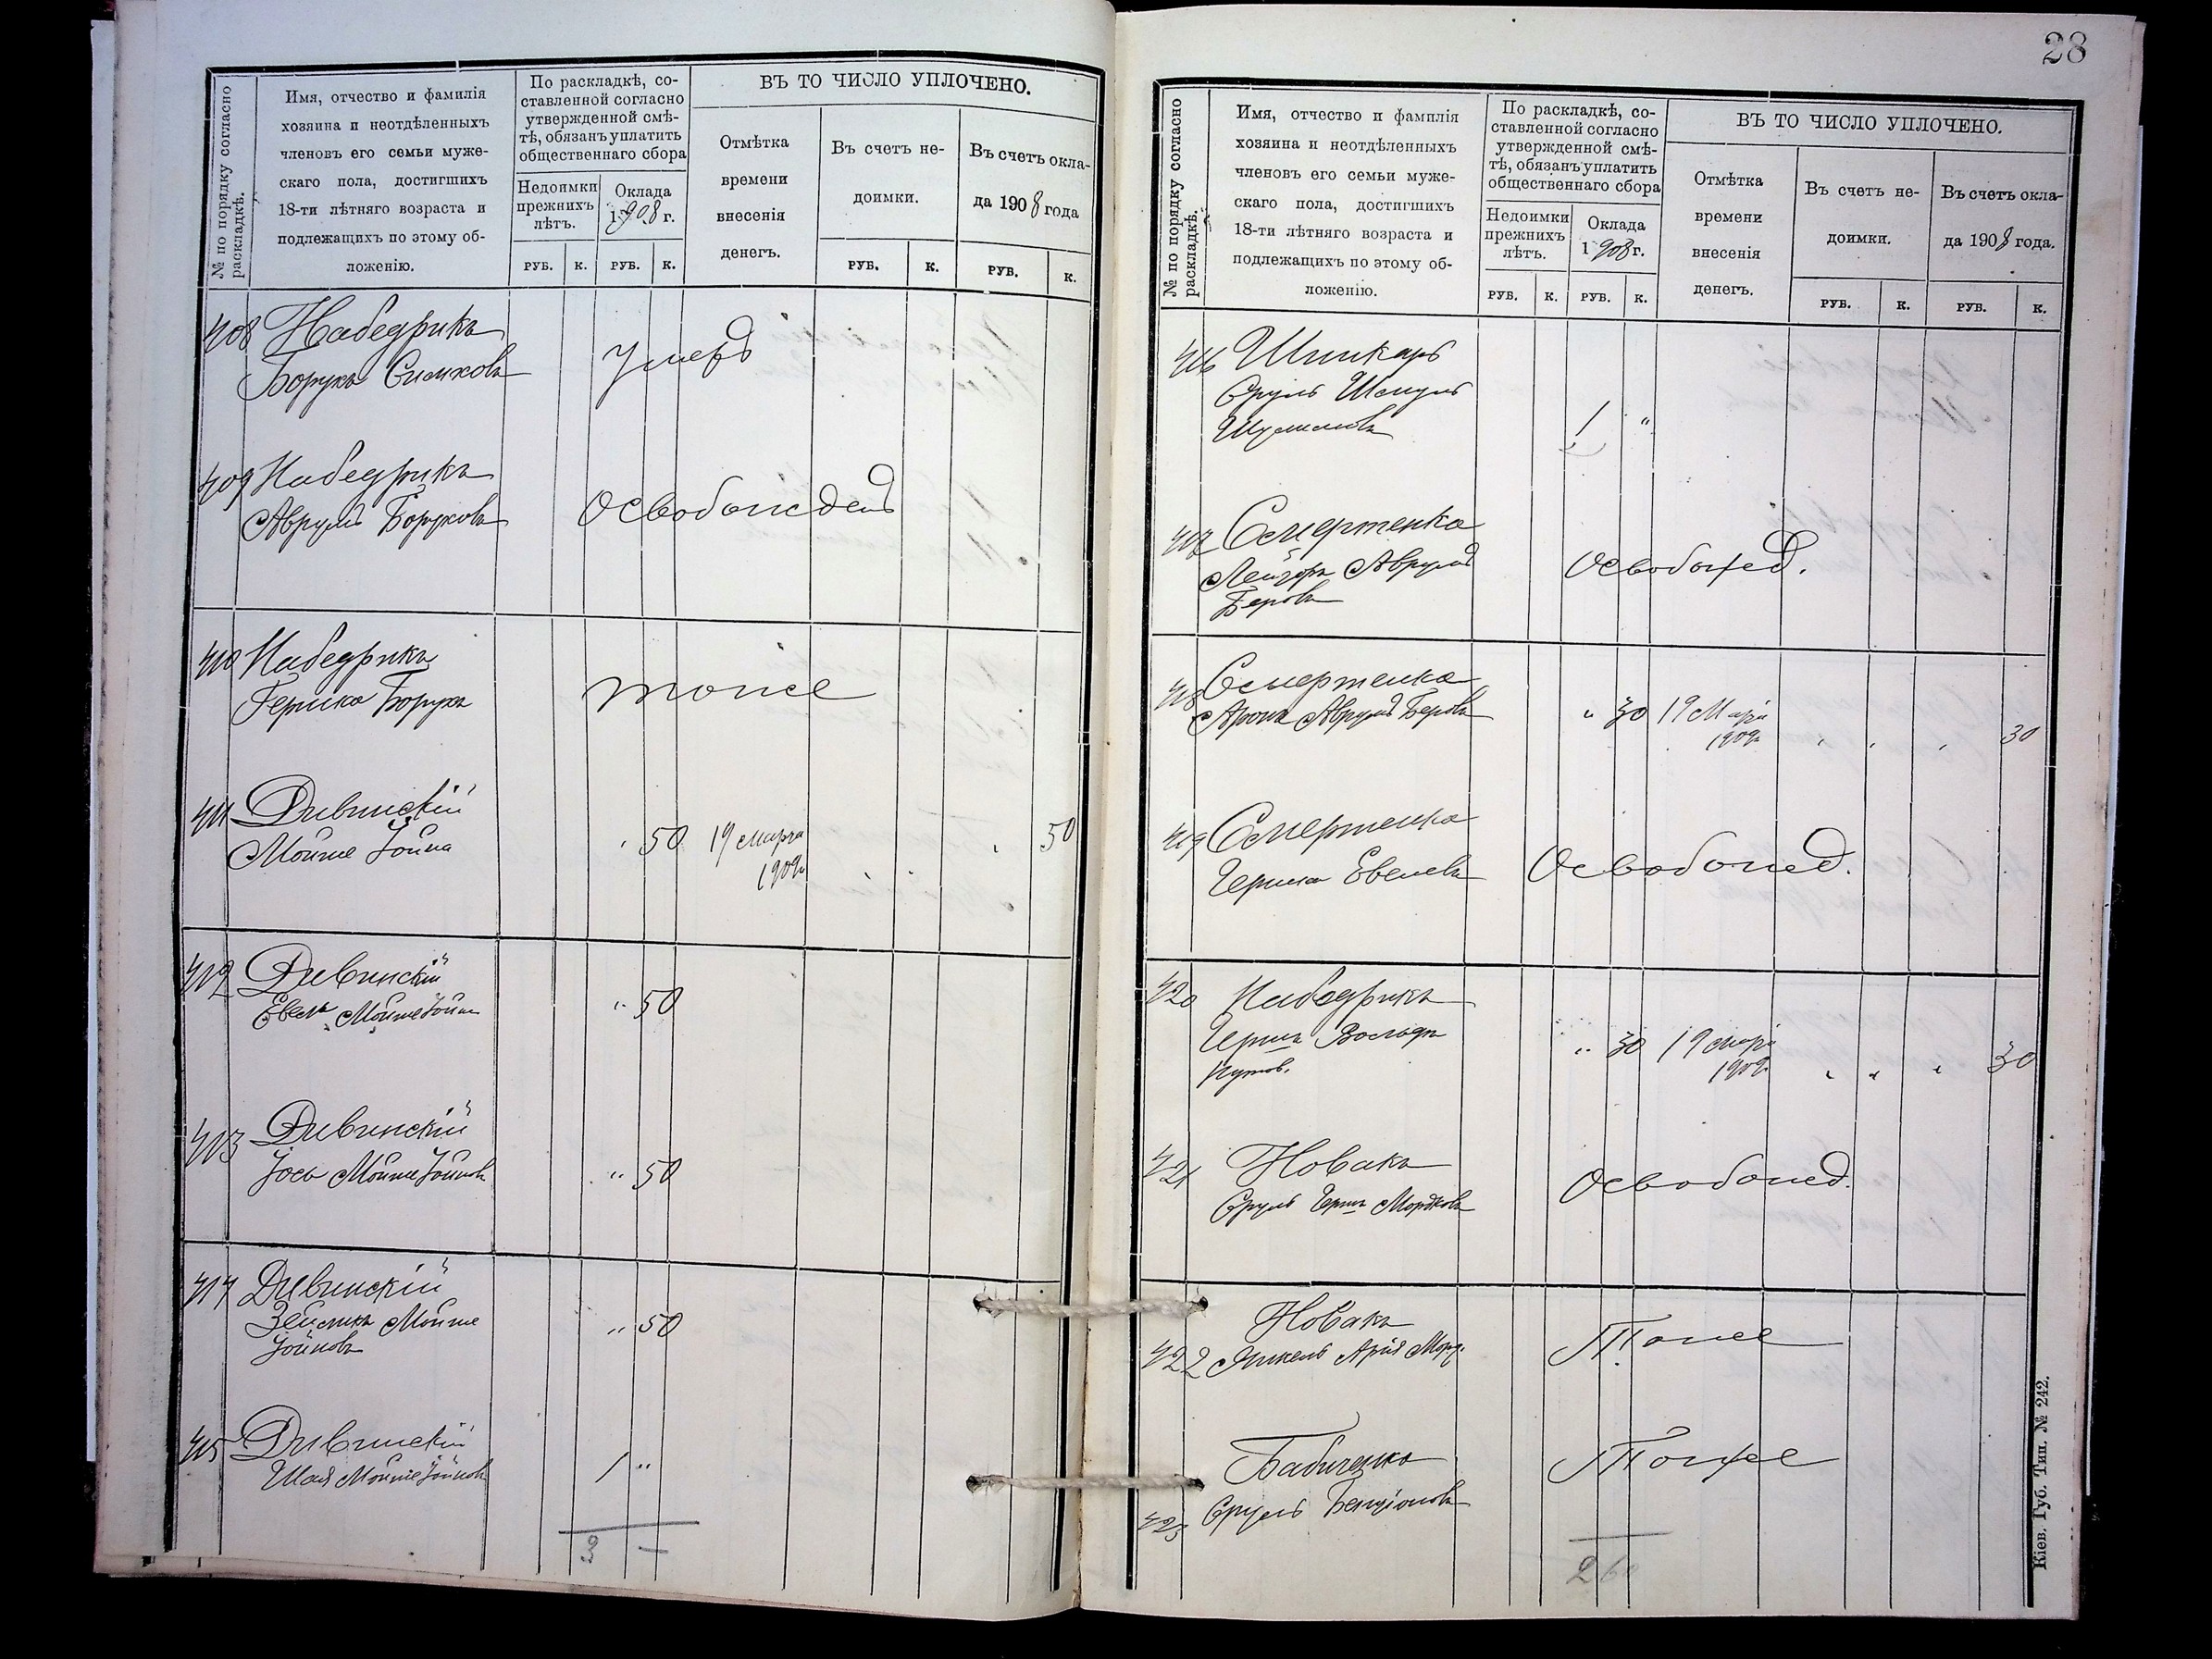 28
№ по порядку согласно раскладкѣ.
Имя, отчество и фамилія
хозяина и неотдѣленныхъ
членовъ его семьи муже-
скаго пола, достигшихъ
18-ти лѣтняго возраста и
подлежащихъ по этому об-
ложенію.
По раскладкѣ, со-
ставленной согласно
утвержденной смѣ-
тѣ, обязанъ уплатить
общественнаго сбора
Недоимки
прежнихъ
лѣтъ.
Оклада
1908 г.
РУБ. К. РУБ. К.
ВЪ ТО ЧИСЛО УПЛОЧЕНО.
Отмѣтка
времени
внесенія
денегъ.
Въ счетъ не-
доимки.
РУБ. К.
Въ счетъ окла-
да 1908 года
РУБ. К.
408 Набедрикъ
Борухъ Симховъ
Умеръ
409 Набедрикъ
Аврумъ Боруховъ
Освобожденъ
410 Набедрикъ
Гершко Борухъ
тоже
411 Дивинскій
Мойше Іойна
" 50 19 марта
1909 г.
" 50
412 Дивинскій
Евель Мойше Іойн
" 50
413 Дивинскій
Іось Мойше Іойновъ
" 50
414 Дивинскій
Зейликъ Мойше
Іойновъ
" 50
415 Дивинскій
Шая Мойше Іойновъ
1 "
3 —
№ по порядку согласно раскладкѣ.
Имя, отчество и фамилія
хозяина и неотдѣленныхъ
членовъ его семьи муже-
скаго пола, достигшихъ
18-ти лѣтняго возраста и
подлежащихъ по этому об-
ложенію.
По раскладкѣ, со-
ставленной согласно
утвержденной смѣ-
тѣ, обязанъ уплатить
общественнаго сбора
Недоимки
прежнихъ
лѣтъ.
Оклада
1908 г.
РУБ. К. РУБ. К.
ВЪ ТО ЧИСЛО УПЛОЧЕНО.
Отмѣтка
времени
внесенія
денегъ.
Въ счетъ не-
доимки.
РУБ. К.
Въ счетъ окла-
да 1908 года.
РУБ. К.
416 Шинкарь
Сруль Шмуль
1 "
417 Смертенко
Лейзоръ Аврумъ
Беровъ
Освобожд.
418 Смертенко
Аронъ Аврумъ Беровъ
" 30 19 Мар
1909 г.
" " " 30
419 Смертенко
Гершко Евелевъ
Освобожд.
420 Набедрикъ
Гершъ Вольфъ
" 30 19 мар
1909 г.
" " " 30
421 Новакъ
Сруль Гершъ Мордковъ
Освобожд.
Новакъ
422 Янкель Арія Морд.
Тоже
Бабиченко
423 Сруль Бенціоновъ
Тоже
2 60
Кіев. Губ. Тип. № 242.